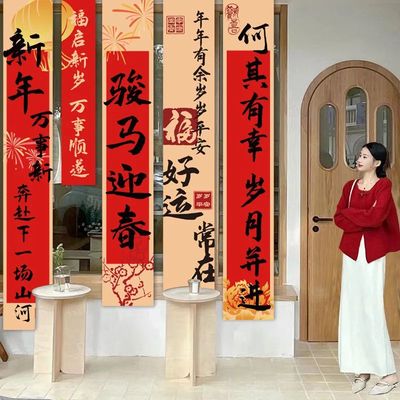 新年万事新
奔赴下一场山河
福启新岁 万事顺遂
骏马迎春
年年有余岁岁平安
福
好运
常在
何其有幸 岁月并进